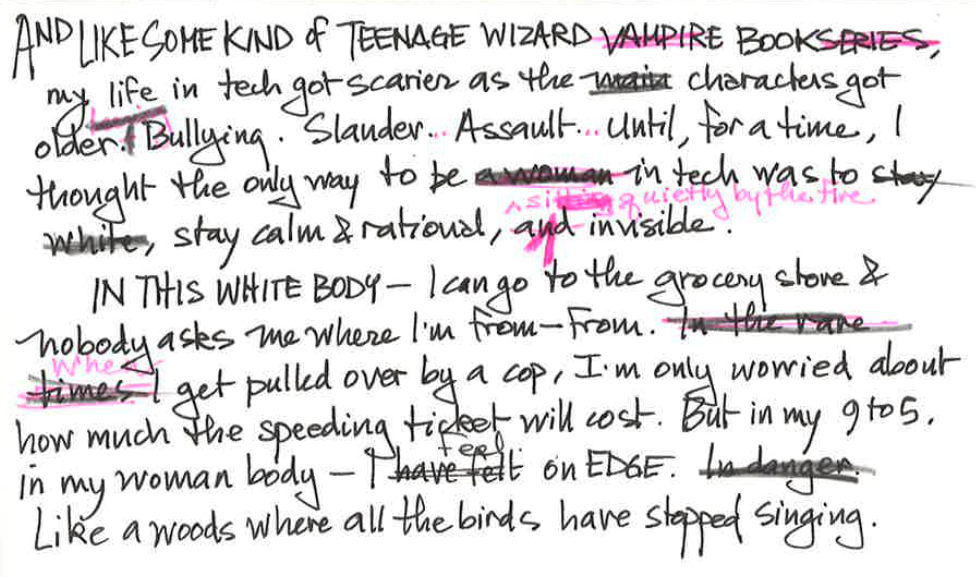 AND LIKE SOME KIND of TEENAGE WIZARD VAMPIRE BOOKSERIES,
my life in tech got scarier as the main characters got
older. Bullying. Slander... Assault... Until, for a time, I
thought the only way to be a woman in tech was to stay
^ sitting quietly by the fire
white, stay calm & rational, and invisible.
IN THIS WHITE BODY – I can go to the grocery store &
nobody asks me where I'm from–from. In the rare
When
times I get pulled over by a cop, I'm only worried about
how much the speeding ticket will cost. But in my 9 to 5,
feel
in my woman body – I have felt on EDGE. In danger.
Like a woods where all the birds have stopped singing.